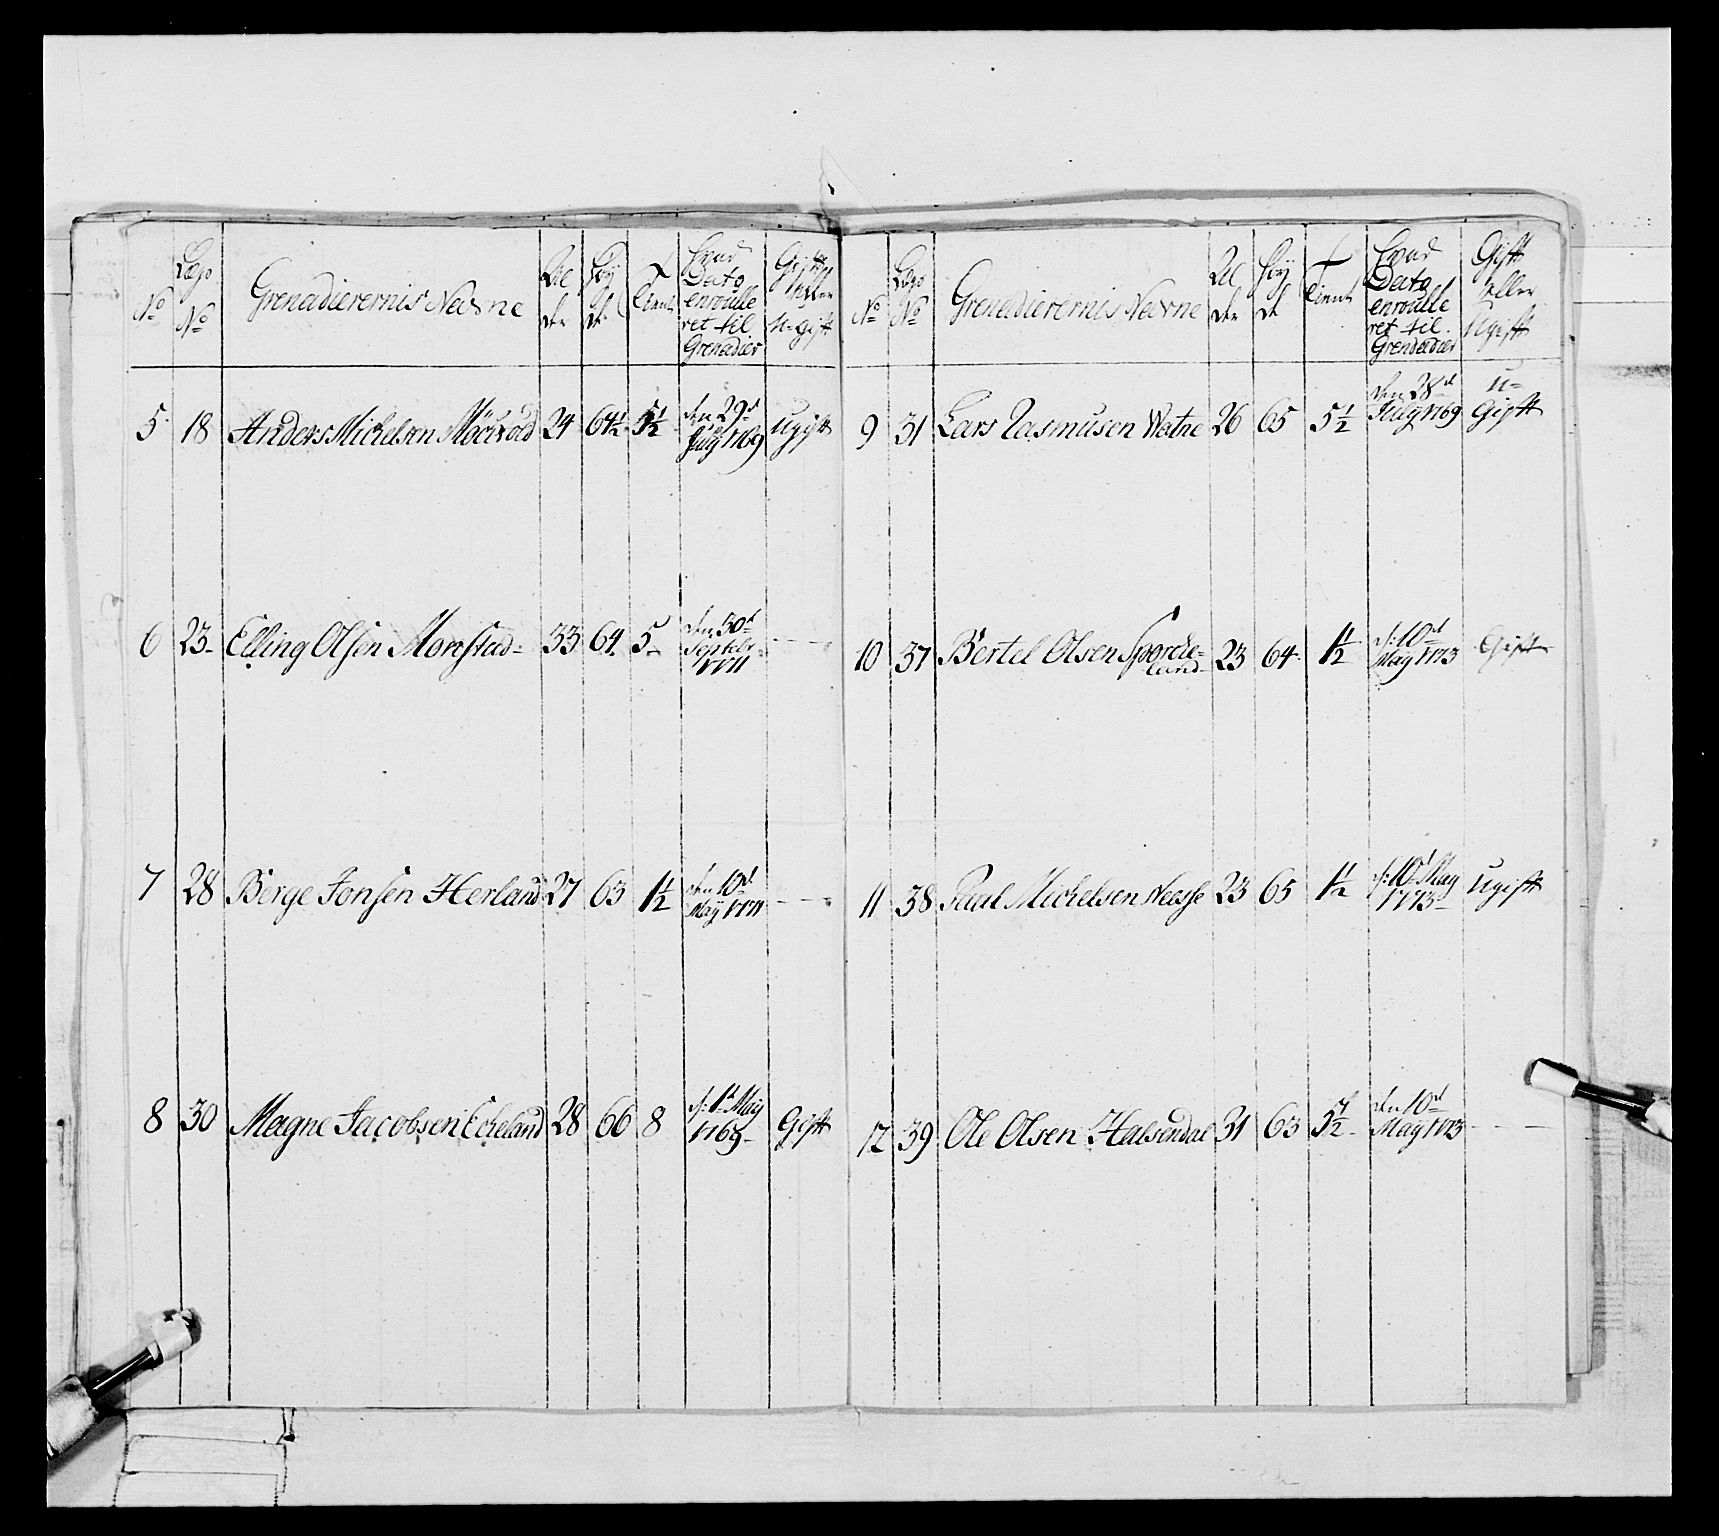 No
Lægs No
Grenadierernis Navne
Al der
Høy de
Tient
Hvad Dato enroulle ret til Grenadier
Gift eller U-gift
5 18 Anders Michelsen 24 64½ 5½ den 29d July 1769 Ugift
6 23 Elling Olsen Monstad 33 64 5 den 30d Septebr 1771 -
7 28 Berge Jonsen Herland 27 63 1½ den 10d May 1771 -
8 30 Magne Jacobsen Echeland 28 66 8 d: 1d May 1769 Gift
No
Lægs No
Grenadierernis Navne
Al der
Høy de
Tient
Hvad Dato enroulle ret til Grenadier
Gift eller Ugift
9 31 Lars Rasmusen Watne 26 65 5½ den 28d July 1769 U-Gift
10 37 Bertel Olsen 23 64 1½ d: 10d May 1773 Gift
11 38 Paal Michelsen 23 65 1½ d: 10d May 1773 Ugift
12 39 Ole Olsen Halsendal 31 63 5½ den 10d May 1773 -